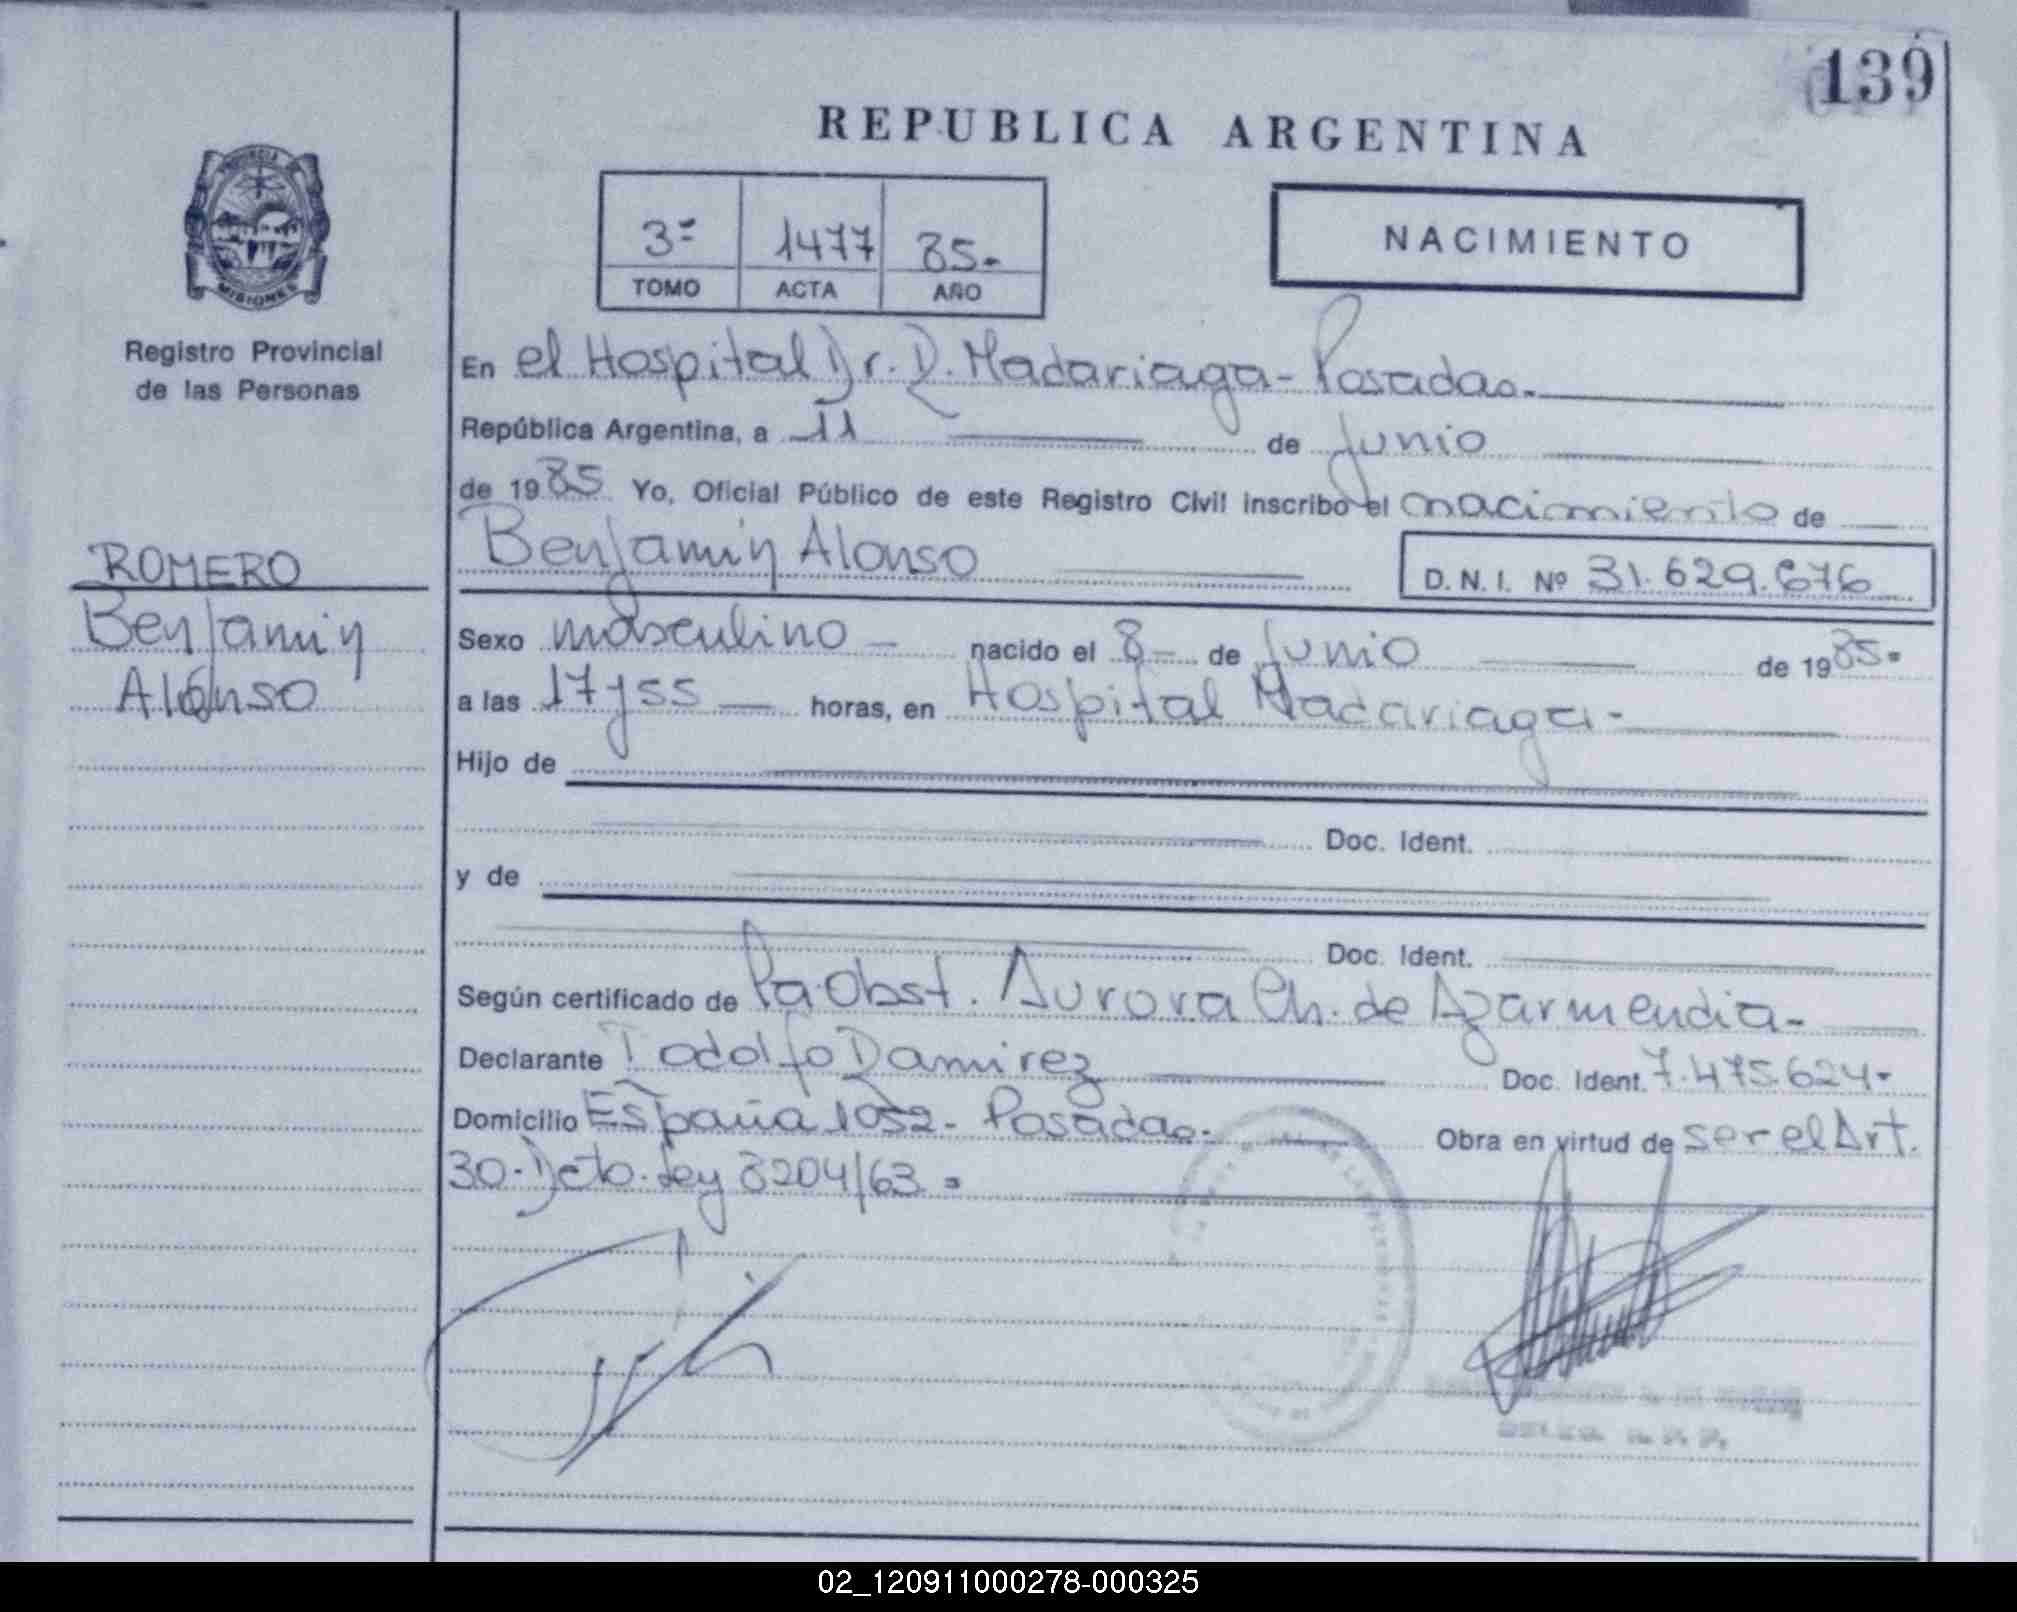 139
REPUBLICA ARGENTINA
3= 1477 85-
TOMO ACTA AÑO
NACIMIENTO
PROVINCIA
MISIONES
Registro Provincial
de las Personas
ROMERO
Benjamin
Alonso
En el Hospital Dr. R. Madariaga - Posadas.
República Argentina, a 11 de Junio
de 1985 Yo, Oficial Público de este Registro Civil inscribo el nacimiento de
Benjamin Alonso D.N.I. Nº 31.629.676
Sexo masculino - nacido el 8- de Junio de 1985.
a las 17 y 55 horas, en Hospital Madariaga-
Hijo de
Doc. Ident.
y de
Doc. Ident.
Según certificado de Obst. Aurora Ch. de Azarmendia-
Declarante Ramirez Doc. Ident. 7.475.624-
Domicilio España 1052- Posadas- Obra en virtud de ser el Art.
30-Dcto. Ley 8204/63.
02_120911000278-000325